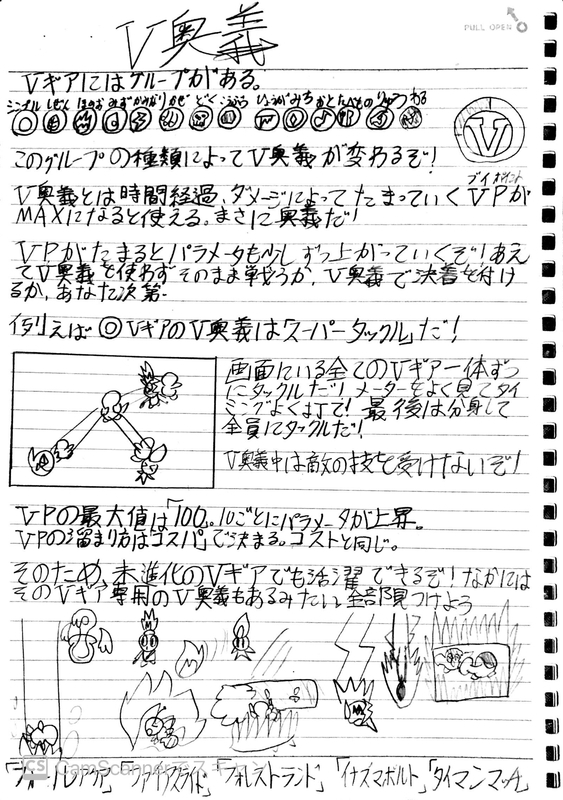 V奥義
PULL OPEN
Vギアにはグループがある。
シンプル しぜん ほのお みず かみなり かぜ どく こうぶつ ひょうが みち おと たべもの りゅう わる
V
このグループの種類によってV奥義が変わるぞ!
ブイポイント
V奥義とは時間経過、ダメージによってたまっていくVPが
MAXになると使える。まさに奥義だ!
VPがたまるとパラメータも少しずつ上がっていくぞ!あえ
てV奥義を使わずそのまま戦うか、V奥義で決着を付け
るか、あなた次第。
例えば◎VギアのV奥義は「スーパータックル」だ!
画面にいる全てのVギア一体ずつ
にタックルだ!メーターをよく見てタイ
ミングよく打て!最後は分身して
全員にタックルだ!
V奥義中は敵の技を受けないぞ!
VPの最大値は「100」。10ごとにパラメータが上昇。
VPの溜まり方は「コスパ」で決まる。コストと同じ。
そのため、未進化のVギアでも活躍できるぞ!なかには
そのVギア専用のV奥義もあるみたい。全部見つけよう
CS CamScannerでスキャン
「ファイアスライド」「フォレストランド」「イナズマボルト」「タイマンマッチ」